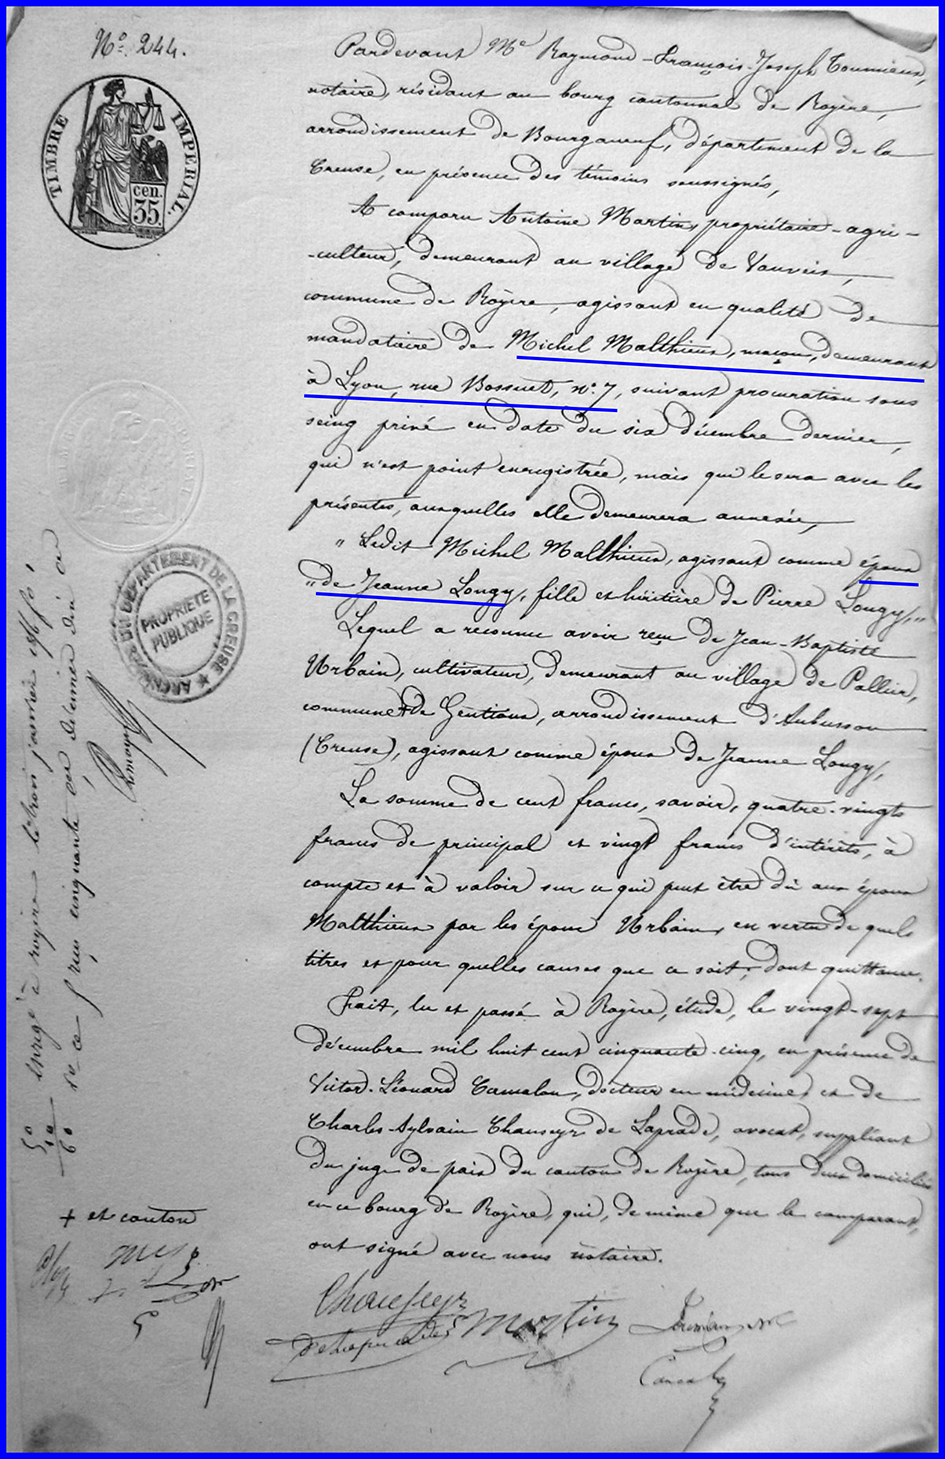 N.° 244.
TIMBRE IMPERIAL.
cen.
35
Pardevant Me Raymond-François-Joseph Toumieux,
notaire, résidant au bourg cantonnal de Royère,
arrondissement de Bourganeuf, département de la
Creuse, en présence des témoins soussignés,
A comparu Antoine Martin, propriétaire-agri-
-culteur, demeurant au village de Vauveix,
commune de Royère, agissant en qualité de
mandataire de Michel Malthieux, maçon, demeurant
à Lyon, rue Bossuet, n.° 7, suivant procuration sous
seing privé en date du six décembre dernier,
qui n'est point enregistrée, mais qui le sera avec les
présentes, auxquelles elle demeurera annexée,
" Ledit Michel Malthieux, agissant comme époux
" de Jeanne Longy, fille et héritière de Pierre Longy, "
Lequel a reconnu avoir reçu de Jean-Baptiste
Urbain, cultivateur, demeurant au village de Pallier,
commune + de Gentioux, arrondissement d'Aubusson
(Creuse), agissant comme époux de Jeanne Longy,
La somme de cent francs, savoir, quatre-vingts
francs de principal et vingt francs d'intérêts, à
compte et à valoir sur ce qui peut être dû aux époux
Malthieux par les époux Urbain, en vertu de quels
titres et pour quelles causes que ce soit; dont quittance.
Fait, lu et passé à Royère, étude, le vingt-sept
décembre mil huit cent cinquante-cinq, en présence de
Victor-Léonard Camalou, docteur en médecine, et de
Charles-Sylvain Chauseyr de Laprade, avocat, suppléant
du juge de paix du canton de Royère, tous deux domiciliés
en ce bourg de Royère, qui, de même que le comparant,
ont signé avec nous notaire.
ARCHIVES DU DÉPARTEMENT DE LA CREUSE
PROPRIÉTÉ
PUBLIQUE
Enregé à Royère le trois janvier 1856 fo
reçu cinquante
50
10
60
+ et canton
Martin